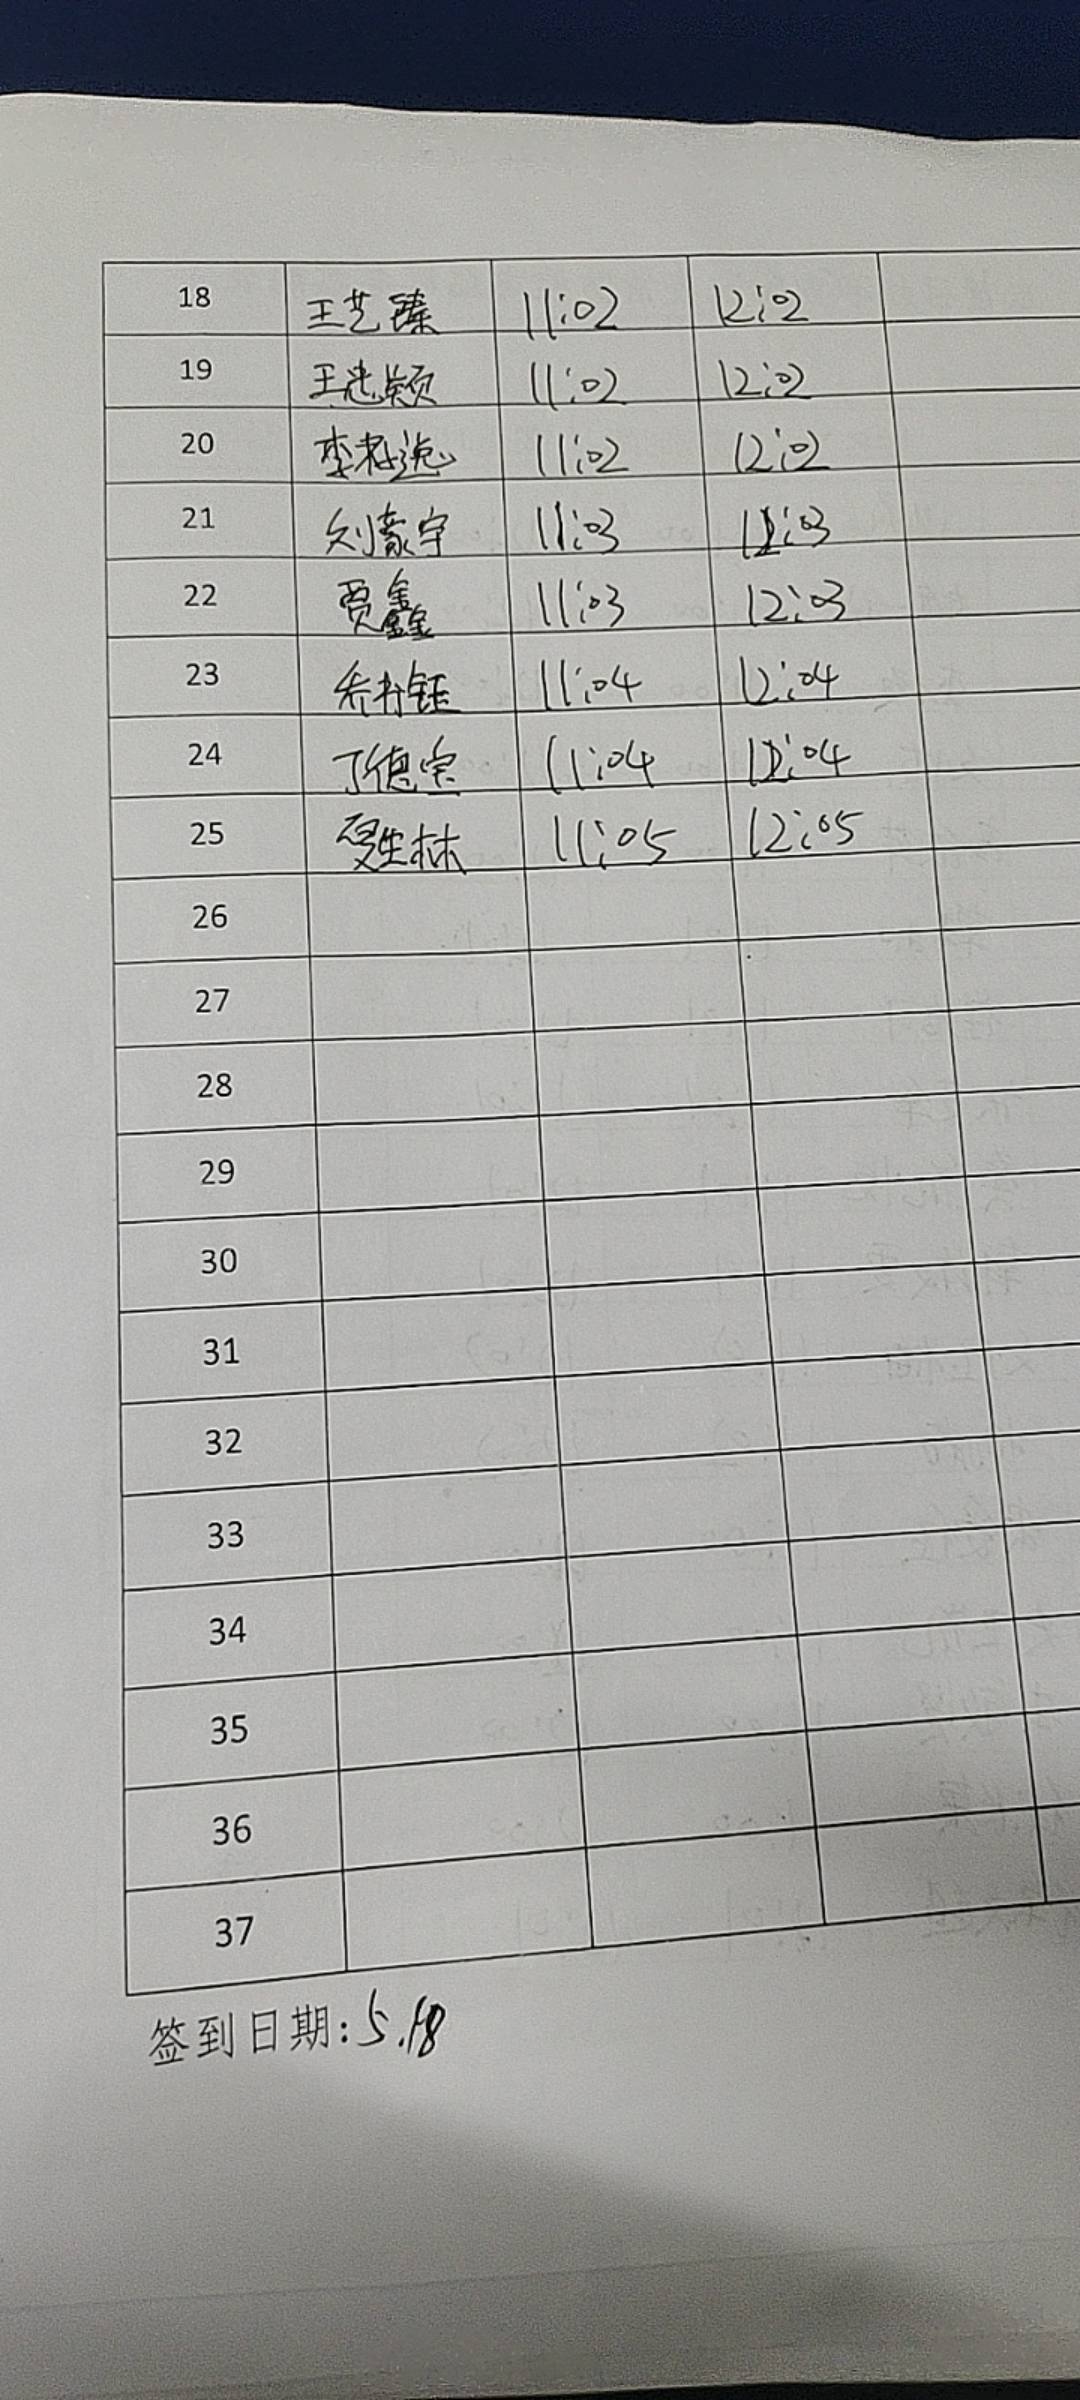 18 王艺臻 11:02 12:02
19 王忠颖 11:02 12:02
20 李 逸 11:02 12:02
21 刘豪宇 11:03 12:03
22 贾鑫 11:03 12:03
23 乔 钰 11:04 12:04
24 丁德宝 11:04 12:04
25 夏生林 11:05 12:05
26
27
28
29
30
31
32
33
34
35
36
37
签到日期:5.18